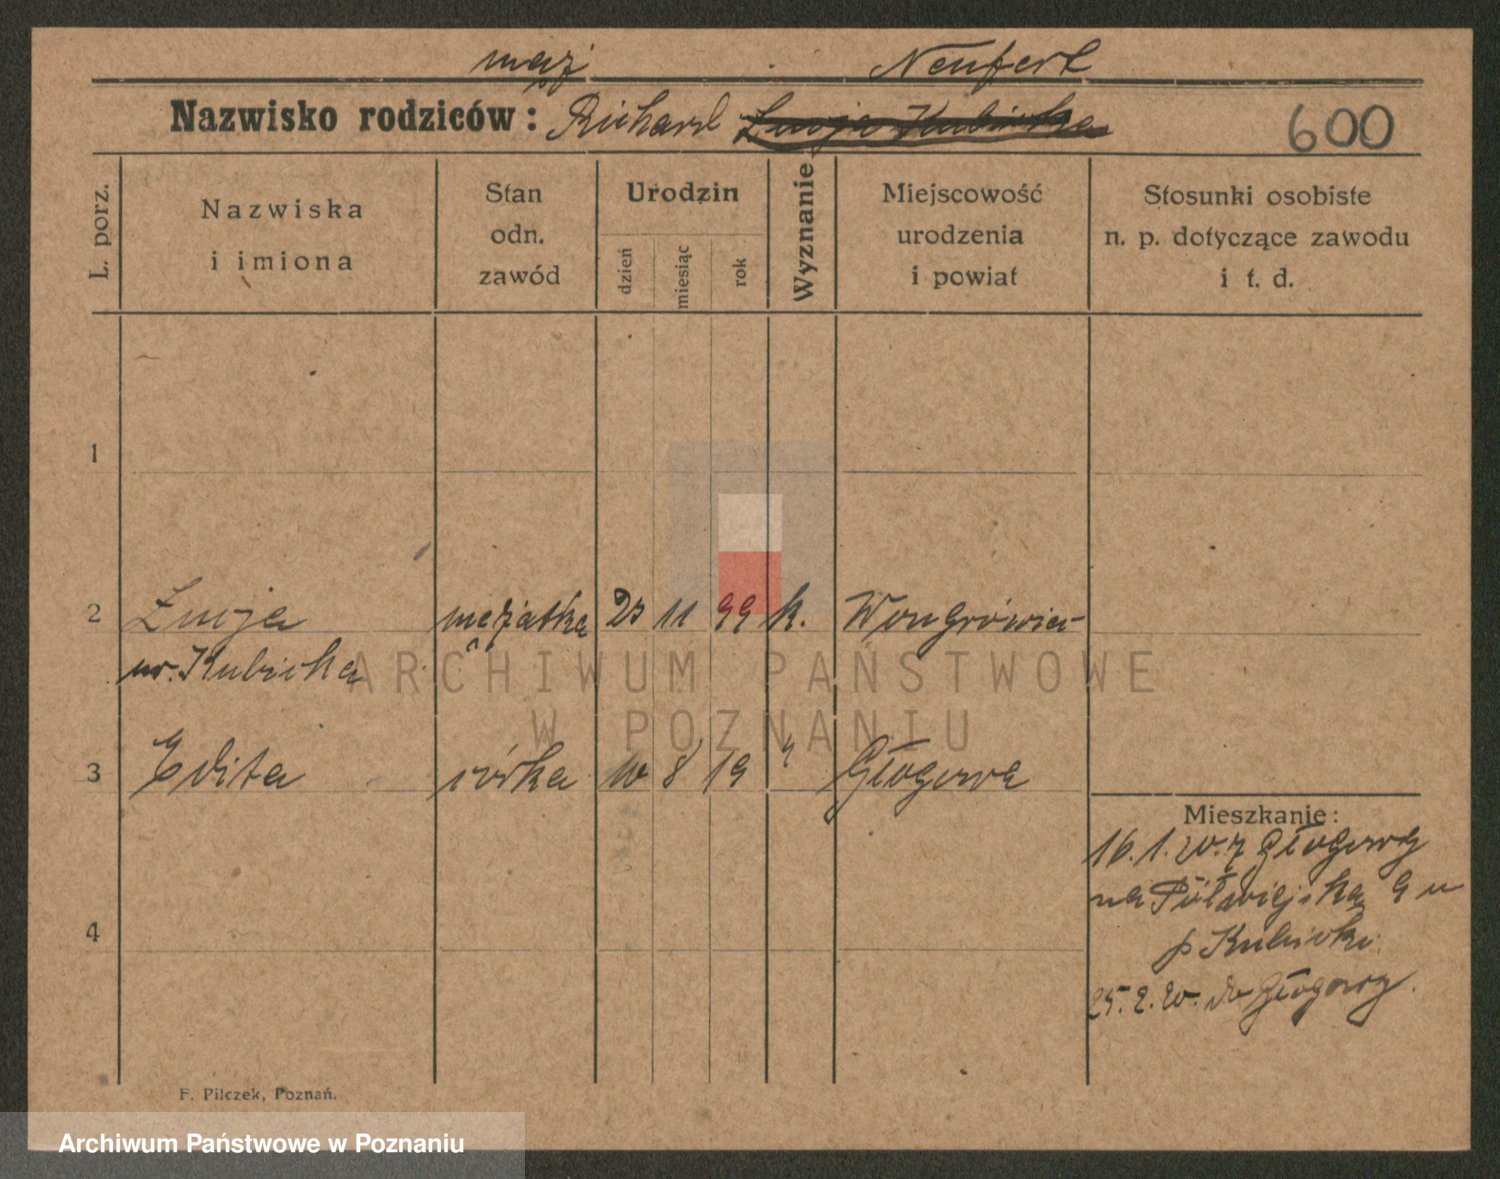 mąż Neufert
Nazwisko rodziców: Richard Łucja Kubicka 600
L. porz.
Nazwiska
i imiona
Stan
odn.
zawód
Urodzin
dzień
miesiąc
rok
Wyznanie
Miejscowość
urodzenia
i powiat
Stosunki osobiste
n. p. dotyczące zawodu
i t. d.
1
2 Łucja mężatka 25 11 99 k. Wongrówiec
ur. Kubicka
3 Edita córka 10 8 19 " Głogowa
4
Mieszkanie:
16.1.20. z Głogowy
na Półwiejską 9 u
p Kubicki
25.2.20. do Głogowy.
F. Pilczek, Poznań.
ARCHIWUM PAŃSTWOWE
W POZNANIU
Archiwum Państwowe w Poznaniu